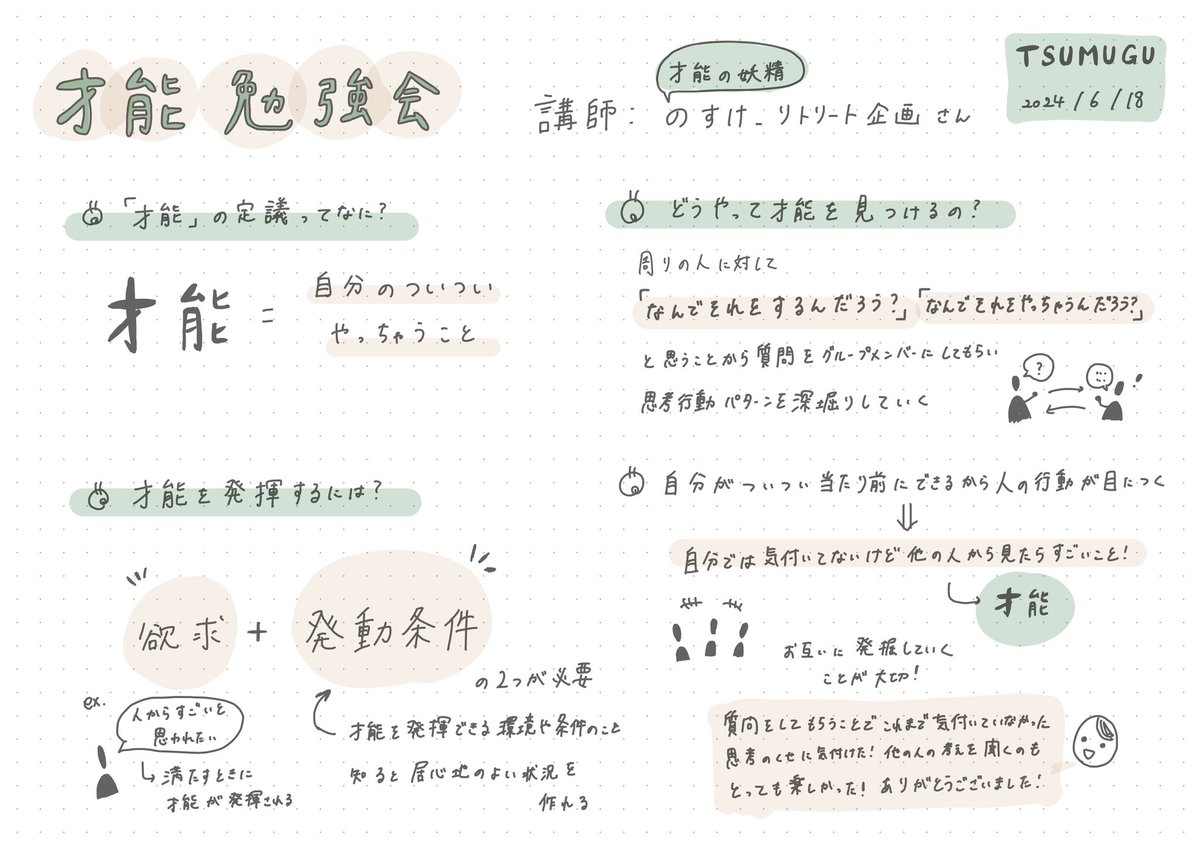 才能勉強会
才能の妖精
講師: のすけ_リトリート企画さん
TSUMUGU
2024/6/18
「才能」の定義ってなに?
才能 =
自分のついつい
やっちゃうこと
才能を発揮するには?
欲求 + 発動条件
の2つが必要
ex.
人からすごいと
思われたい
満たすときに
才能が発揮される
才能を発揮できる環境や条件のこと
知ると居心地のよい状況を
作れる
どうやって才能を見つけるの?
周りの人に対して
「なんでそれをするんだろう?」「なんでそれをやっちゃうんだろう?」
と思うことから質問をグループメンバーにしてもらい
思考行動パターンを深堀りしていく
?
自分がついつい当たり前にできるから人の行動が目につく
自分では気付いてないけど他の人から見たらすごいこと!
才能
お互いに発掘していく
ことが大切!
質問をしてもらうことでこれまで気付いていなかった
思考のくせに気付けた!他の人の考えを聞くのも
とっても楽しかった!ありがとうございました!